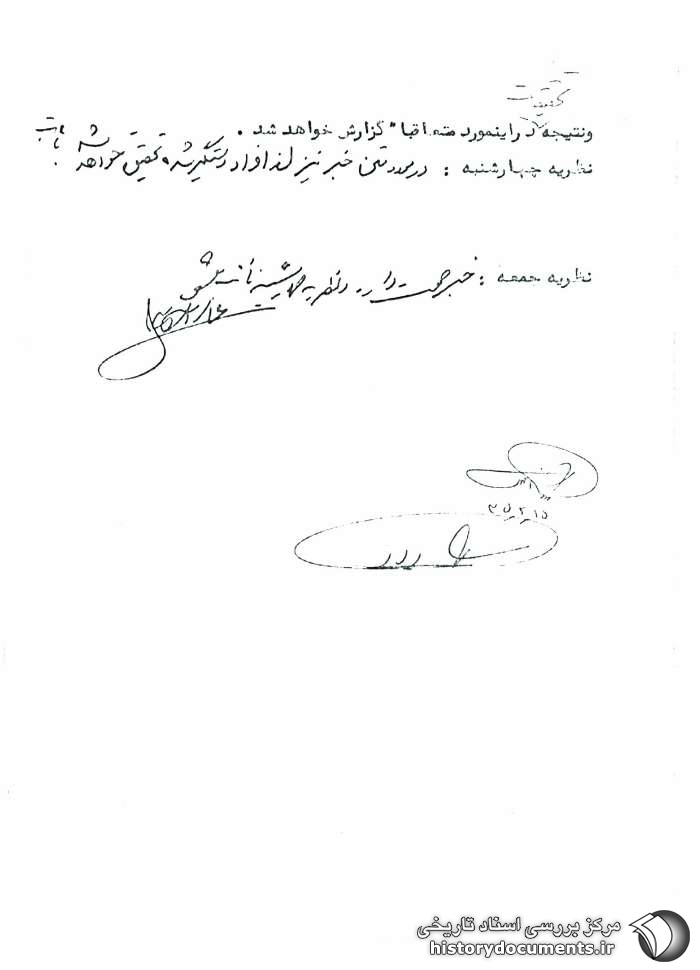 تحقیقات
ونتیجه دراینمورد متعاقبا" گزارش خواهد شد .
نظریه چهارشنبه : در مورد متن خبر نیز از افراد دستگیر شده تحقیق خواهد شد
نظریه جمعه : خبر صحت دارد و نظریه چهارشنبه تأیید میشود
۳۵٫۲٫۱۵
مرکز بررسی اسناد تاریخی
historydocuments.ir